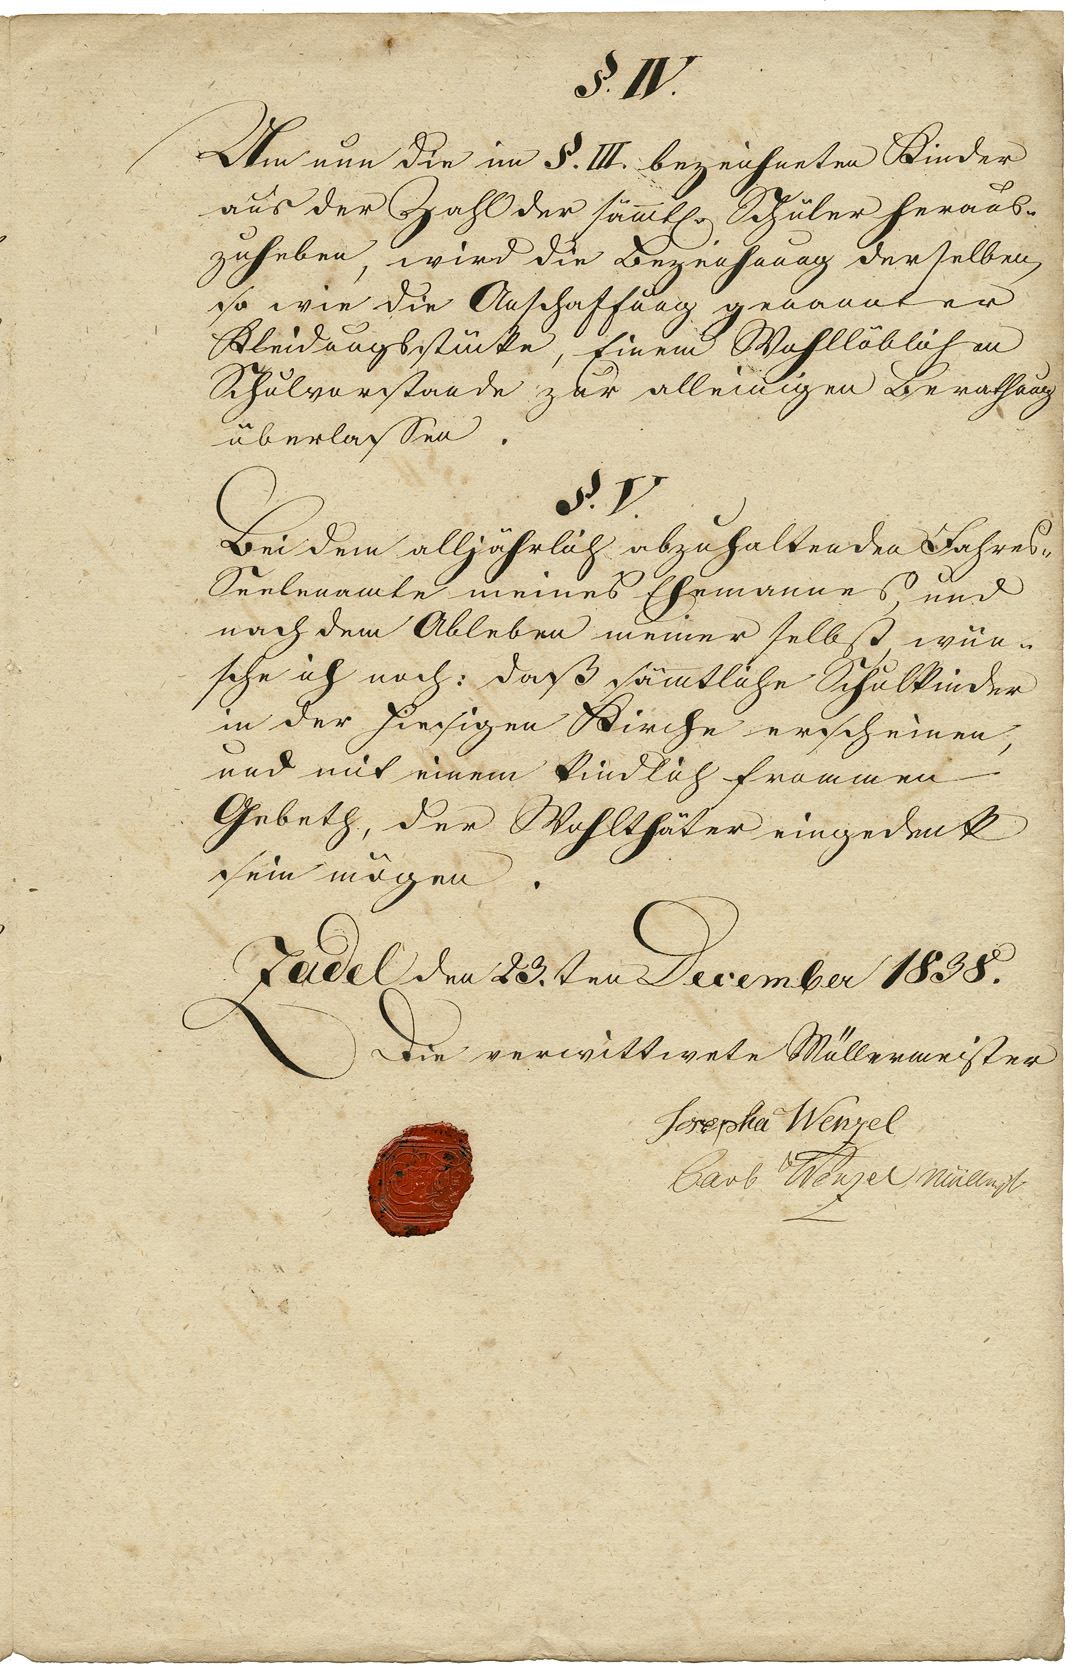 §. IV.
Um nun die im §. III. bezeichneten Kinder
aus der Zahl der sämtl. Schüler heraus-
zuheben, wird die Bezeichnung derselben,
so wie die Anschaffung genannter
Kleidungsstücke, Einem Wohllöblichen
Schulvorstande zur alleinigen Berathung
überlassen.
§. V.
Bei dem alljährlich abzuhaltenden Jahres-
Seelenamte meines Ehemannes, und
nach dem Ableben meiner selbst, wün-
sche ich noch: daß sämtliche Schulkinder
in der hiesigen Kirche erscheinen,
und mit einem kindlich frommen
Gebeth, der Wohlthäter eingedenk
sein mögen.
Zadel den 23.ten December 1838.
Die verwittwete Müllermeister
Josepha Wenzel
Carl Wenzel